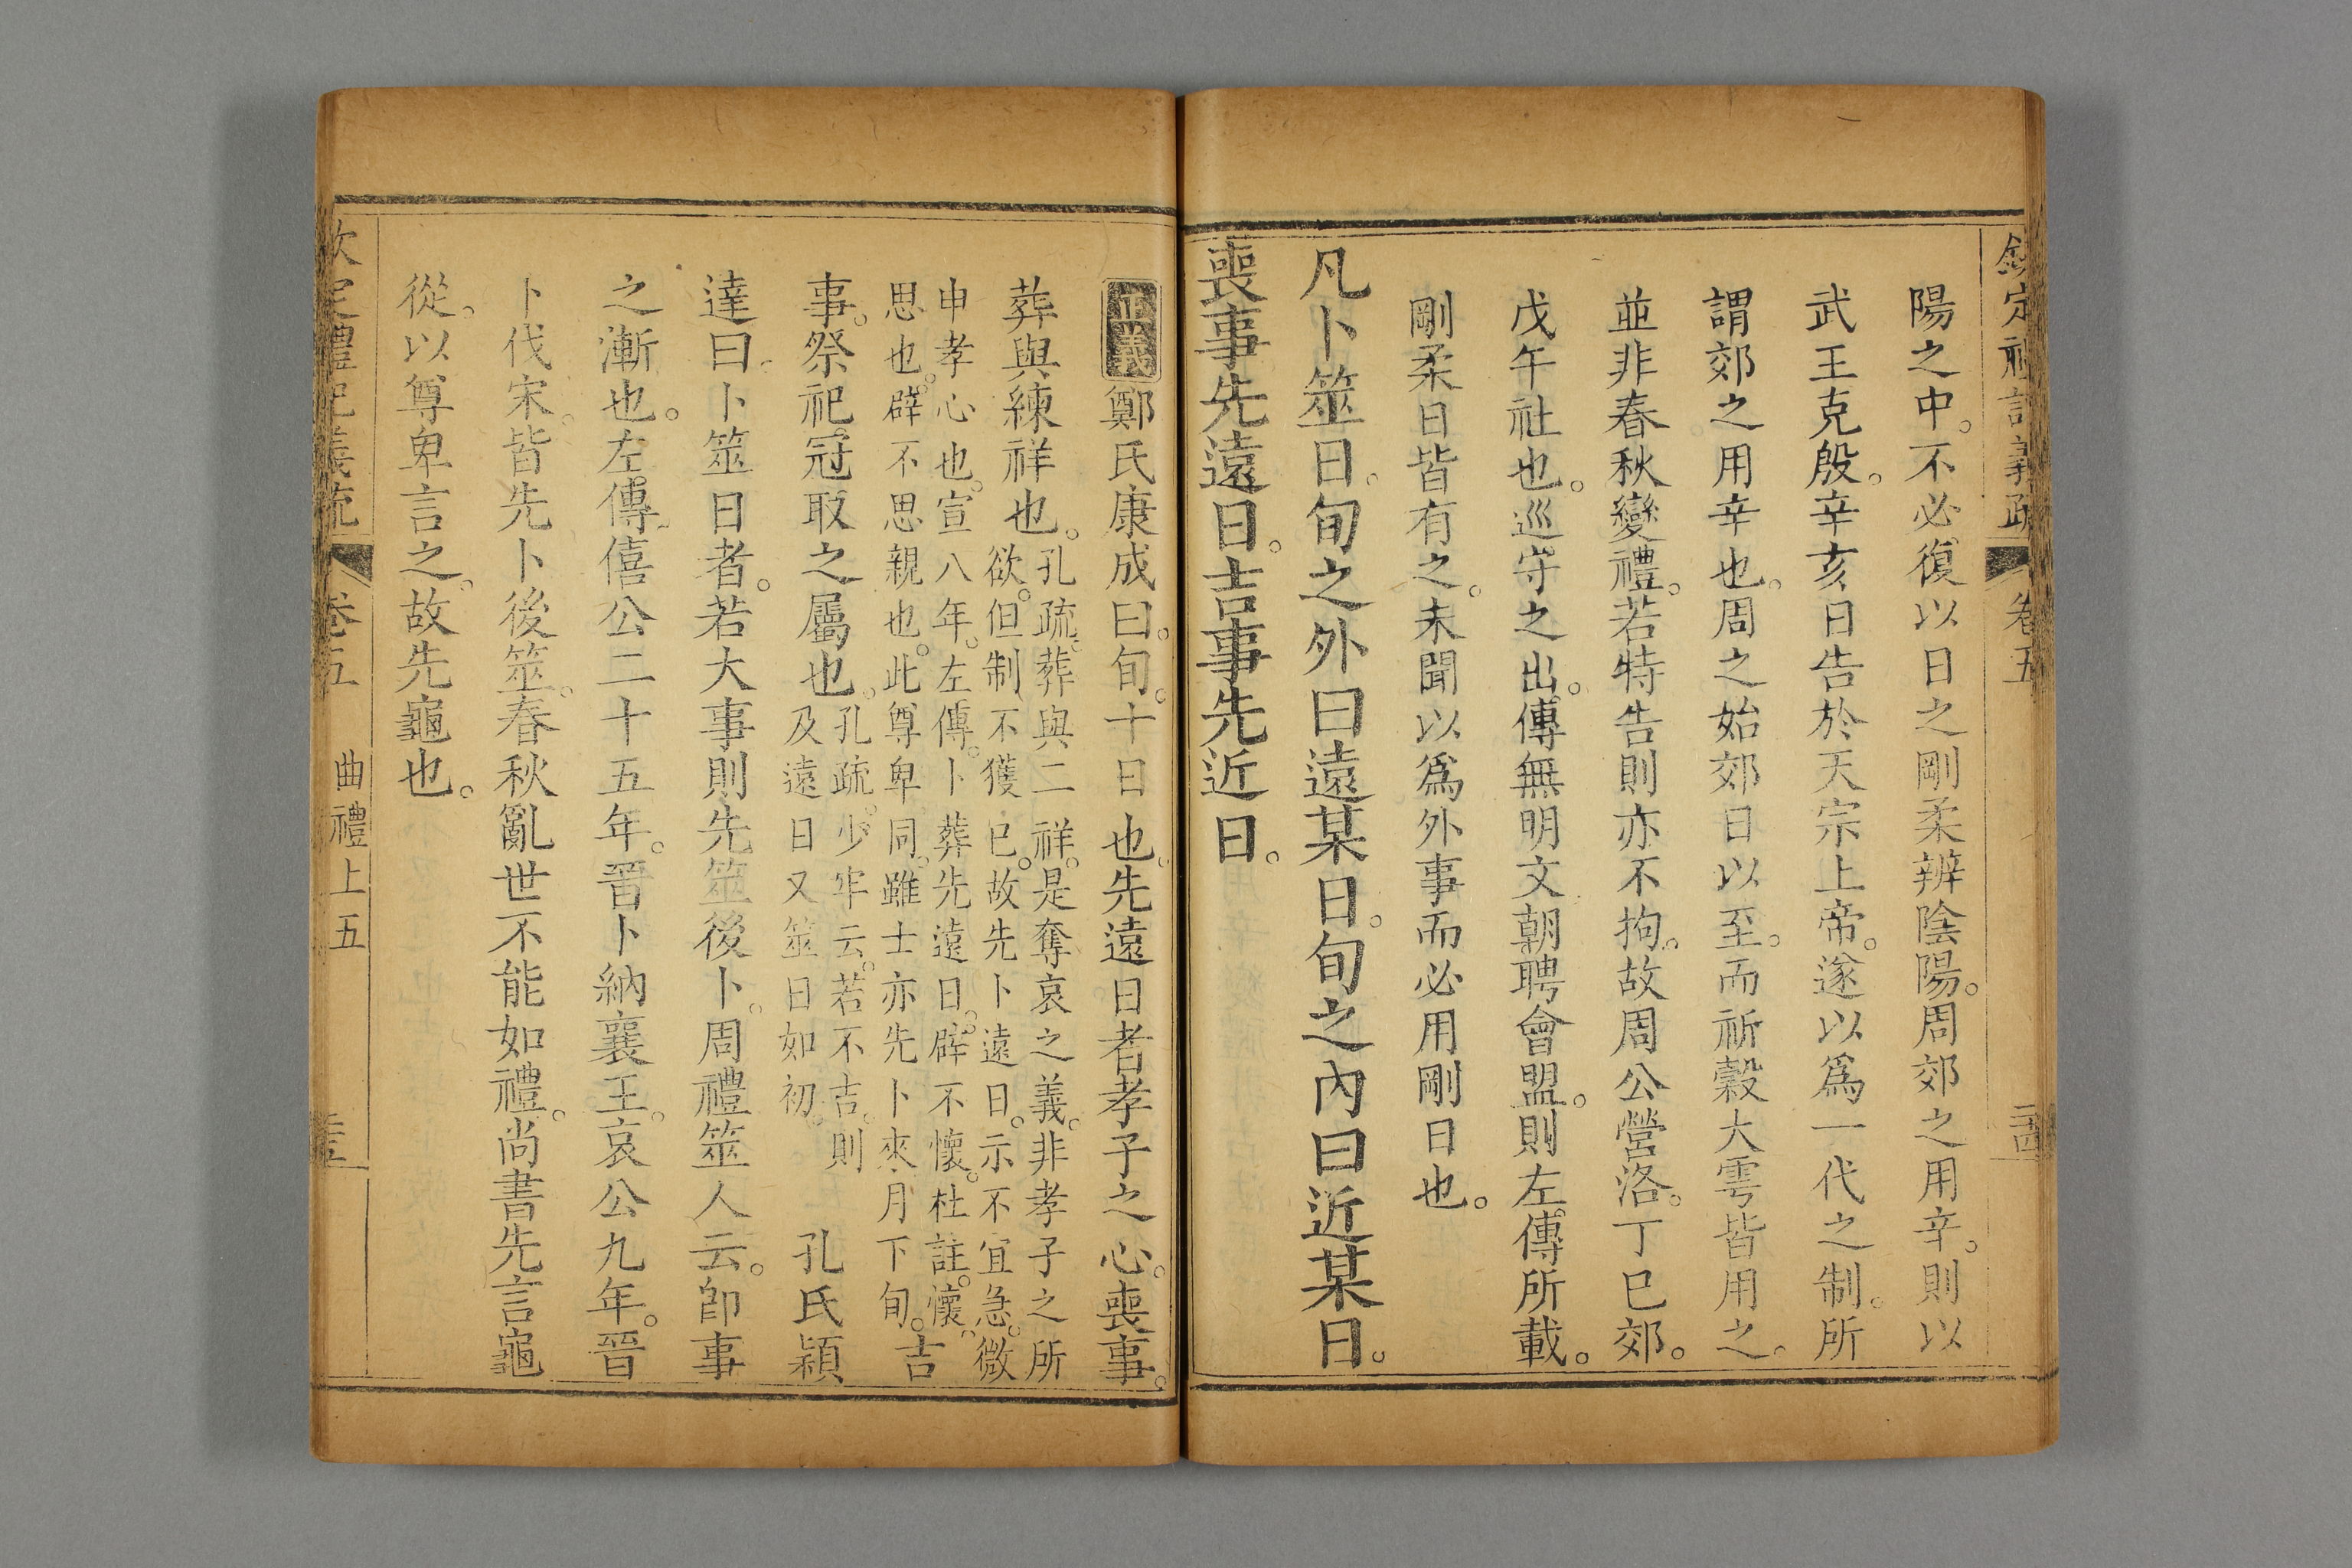 欽定禮記義疏 卷五
陽之中。不必復以日之剛柔辨陰陽。周郊之用辛。則以
武王克殷。辛亥日告於天宗上帝。遂以爲一代之制。所
謂郊之用辛也。周之始郊日以至。而祈穀大雩皆用之。
並非春秋變禮。若特告則亦不拘。故周公營洛。丁巳郊。
戊午社也。巡守之出。傳無明文。朝聘會盟。則左傳所載。
剛柔日皆有之。未聞以爲外事而必用剛日也。
凡卜筮日。旬之外曰遠某日。旬之內曰近某日。
喪事先遠日。吉事先近日。
正義 鄭氏康成曰。旬。十日也。先遠日者。孝子之心。喪事。
葬與練祥也。
孔疏。葬與二祥。是奪哀之義。非孝子之所
欲。但制不獲已。故先卜遠日。示不宜急。微
申孝心也。宣八年。左傳。卜葬先遠日。辟不懷。杜註。懷。
思也。辟不思親也。此尊卑同。雖士亦先卜來月下旬。
吉
事。祭祀冠取之屬也。
孔疏。少牢云。若不吉。則
及遠日又筮日如初。
孔氏穎
達曰。卜筮日者。若大事則先筮後卜。周禮筮人云。卽事
之漸也。左傳。僖公二十五年。晉卜納襄王。哀公九年。晉
卜伐宋。皆先卜後筮。春秋亂世不能如禮。尚書先言龜
從。以尊卑言之。故先龜也。
欽定禮記義疏 卷五 曲禮上五